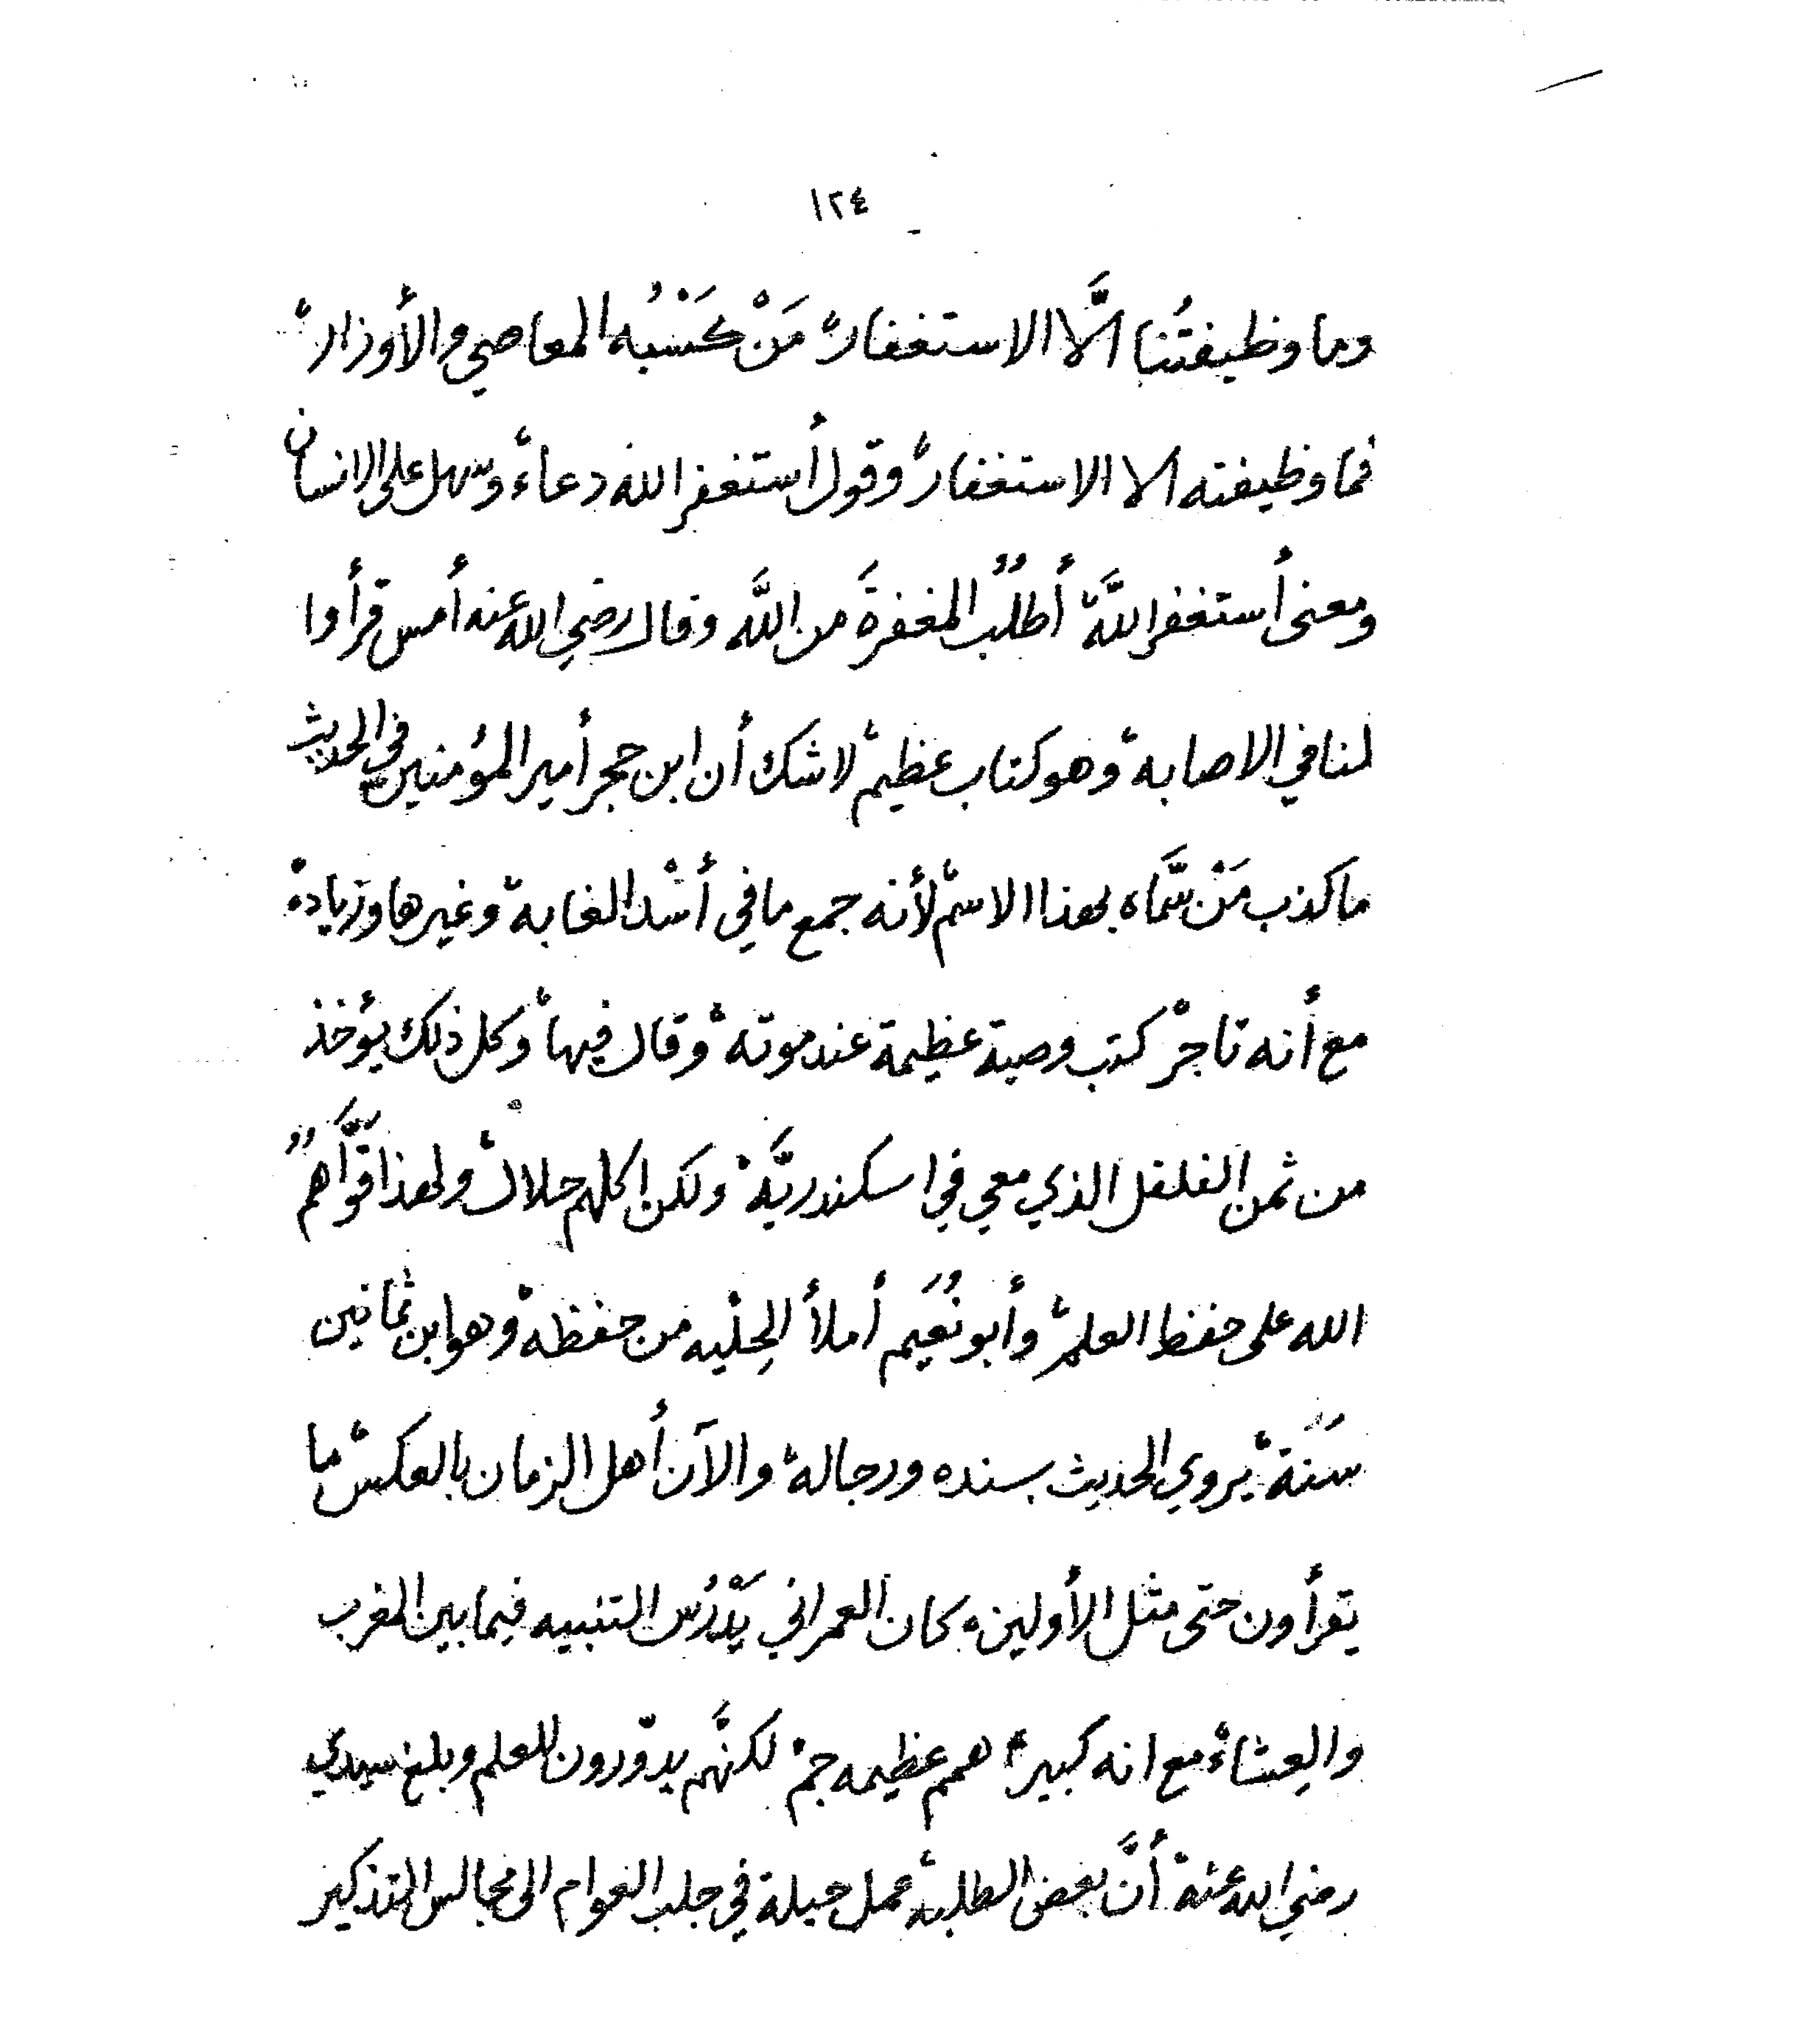 ١٢٤
وما وظيفتُنا الَّا الاستغفار، مَنْ كَسْبُه المعاصي والأوزار،
فما وظيفته الا الاستغفار، وقول أستغفر الله دعاء، وسهل على الانسان
ومعنى أستغفر اللَّه، أطلُبُ المغفرةَ من اللَّه وقال رضي الله عنه أمس قرأوا
لنا في الاصابة، وهو كتاب عظيم، لاشك أن ابن حجر أمير المؤمنين في الحديث
ما كذب مَنْ سَّماه بهذا الاسم، لأنه جمع ما في أسْد الغابة، وغيرها وزيادة،
مع أنه تاجر، كتب وصية عظيمة عند موته، وقال فيها، وكل ذلك يؤخذ
من ثمن الفلفل الذي معي في اسكندريَّة، ولكن اكلهم حلال، ولهذا قوَّاهُمُ
الله على حفظ العلم، وأبو نُعَيم أملأ الحِلْيه من حفظه، وهو ابن ثمانين
سَنَة، يروي الحديث بسنده ورجاله، والآن أهل الزمان بالعكس، ما
يقرأون حتى مثل الأولين، كان العمراني يَدْرُس التنبيه فيما بين المغرب
والعِشاء، مع انه كبير، همم عظيمه جم، لكنَّهم يدوّرون للعلم وبلغ سيدي
رضي الله عنه، أنَّ بعض الطلبة، عمل حيلة في جلب العوام الى مجالس التذكير